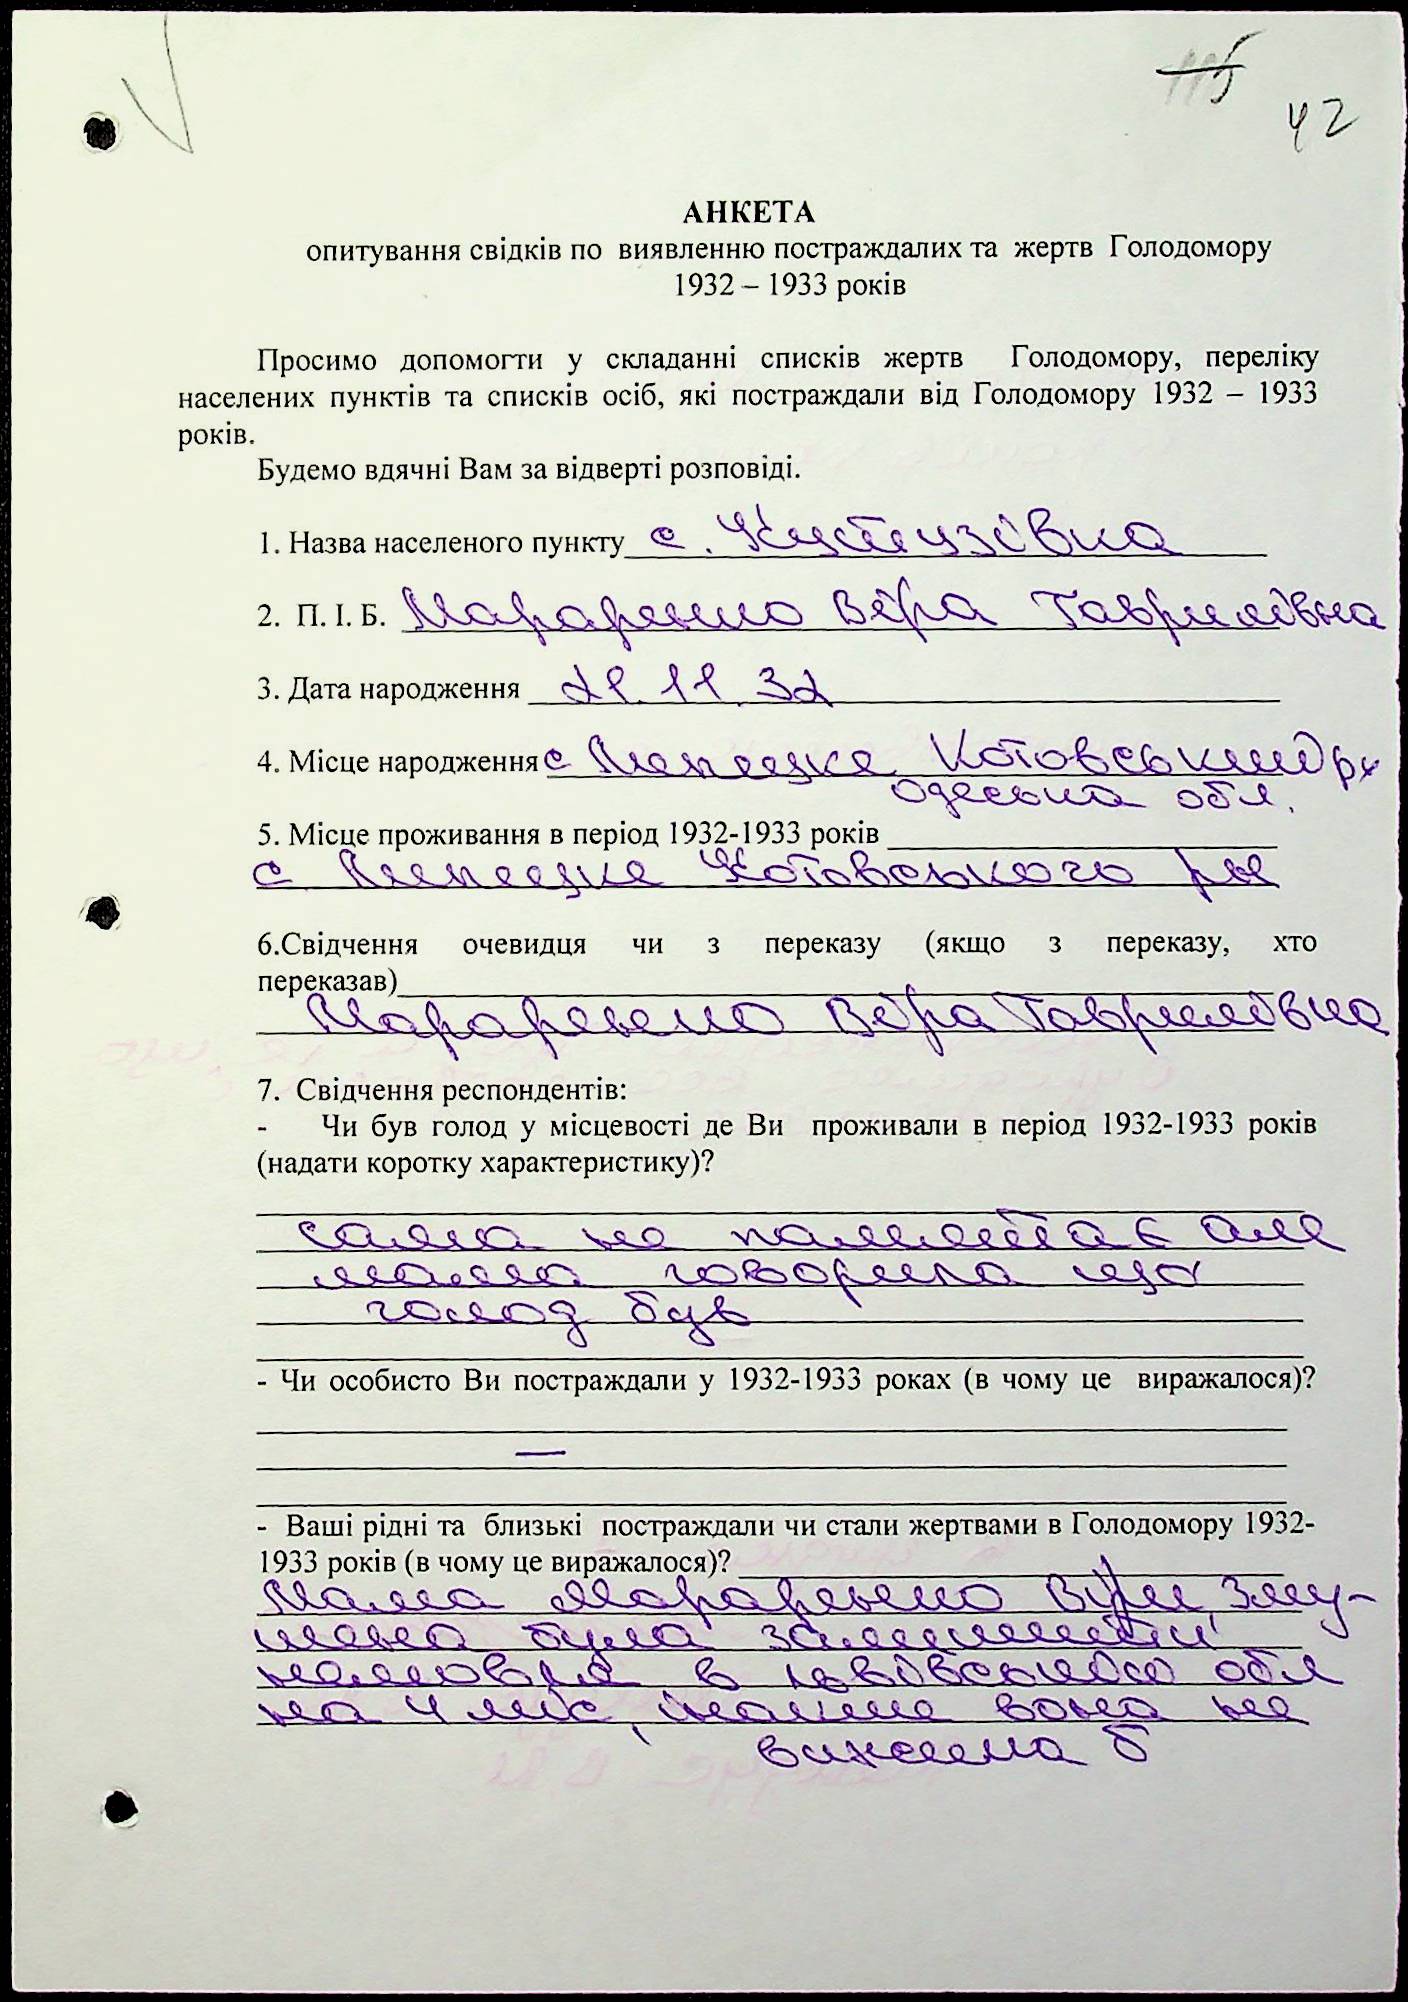 115
42
АНКЕТА
опитування свідків по виявленню постраждалих та жертв Голодомору
1932 – 1933 років
Просимо допомогти у складанні списків жертв Голодомору, переліку
населених пунктів та списків осіб, які постраждали від Голодомору 1932 – 1933
років.
Будемо вдячні Вам за відверті розповіді.
1. Назва населеного пункту с.
2. П. І. Б. Віра Гаврилівна
3. Дата народження 21.11.32
4. Місце народження с Котовський
Одеська обл.
5. Місце проживання в період 1932-1933 років
с Котовського
6.Свідчення очевидця чи з переказу (якщо з переказу, хто
переказав)
Віра Гаврилівна
7. Свідчення респондентів:
- Чи був голод у місцевості де Ви проживали в період 1932-1933 років
(надати коротку характеристику)?
сама не памятає але
мама говорила що
голод був
- Чи особисто Ви постраждали у 1932-1933 роках (в чому це виражалося)?
—
- Ваші рідні та близькі постраждали чи стали жертвами в Голодомору 1932-
1933 років (в чому це виражалося)?
Мама Віри зму-
шена була залишити
немовля в обл
на 4 міс, інакше вона не
вижила б